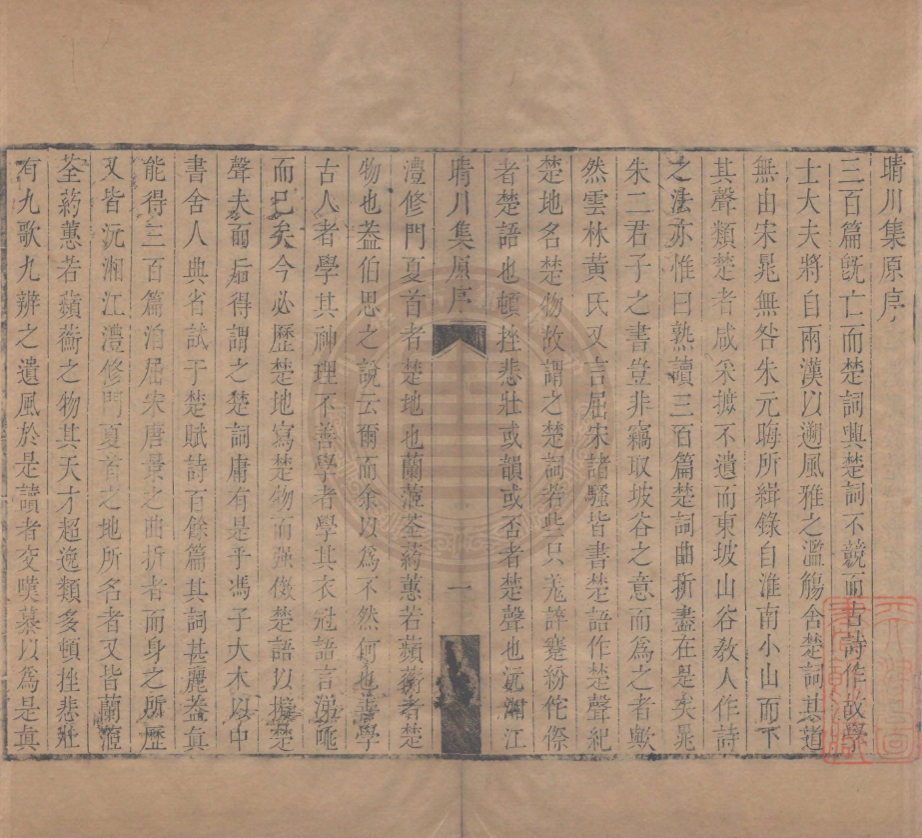 晴川集原序
三百篇旣亡而楚詞興楚詞不競而古詩作故學
士大夫將自兩漢以遡風雅之濫觴舍楚詞其道
無由宋晁無咎朱元晦所緝錄自淮南小山而下
其聲類楚者咸采摭不遺而東坡山谷敎人作詩
之法亦惟曰熟讀三百篇楚詞曲折盡在是矣晁
朱二君子之書豈非竊取坡谷之意而爲之者歟
然雲林黃氏又言屈宋諸騷皆書楚語作楚聲紀
楚地名楚物故謂之楚詞若些只羌誶蹇紛侘傺
者楚語也頓挫悲壯或韻或否者楚聲也沅湘江
晴川集原序
一
澧修門夏首者楚地也蘭茝荃葯蕙若蘋蘅者楚
物也葢伯思之說云爾而余以爲不然何也善學
古人者學其神理不善學者學其衣冠語言涕唾
而已矣今必歷楚地寫楚物而強傚楚語以擬楚
聲夫而后得謂之楚詞庸有是乎馮子大木以中
書舍人典省試于楚賦詩百餘篇其詞甚麗葢眞
能得三百篇洎屈宋唐景之曲折者而身之所歷
又皆沅湘江澧修門夏首之地所名者又皆蘭茝
荃葯蕙若蘋蘅之物其天才超逸類多頓挫悲壯
有九歌九辨之遺風於是讀者交嘆慕以爲是眞